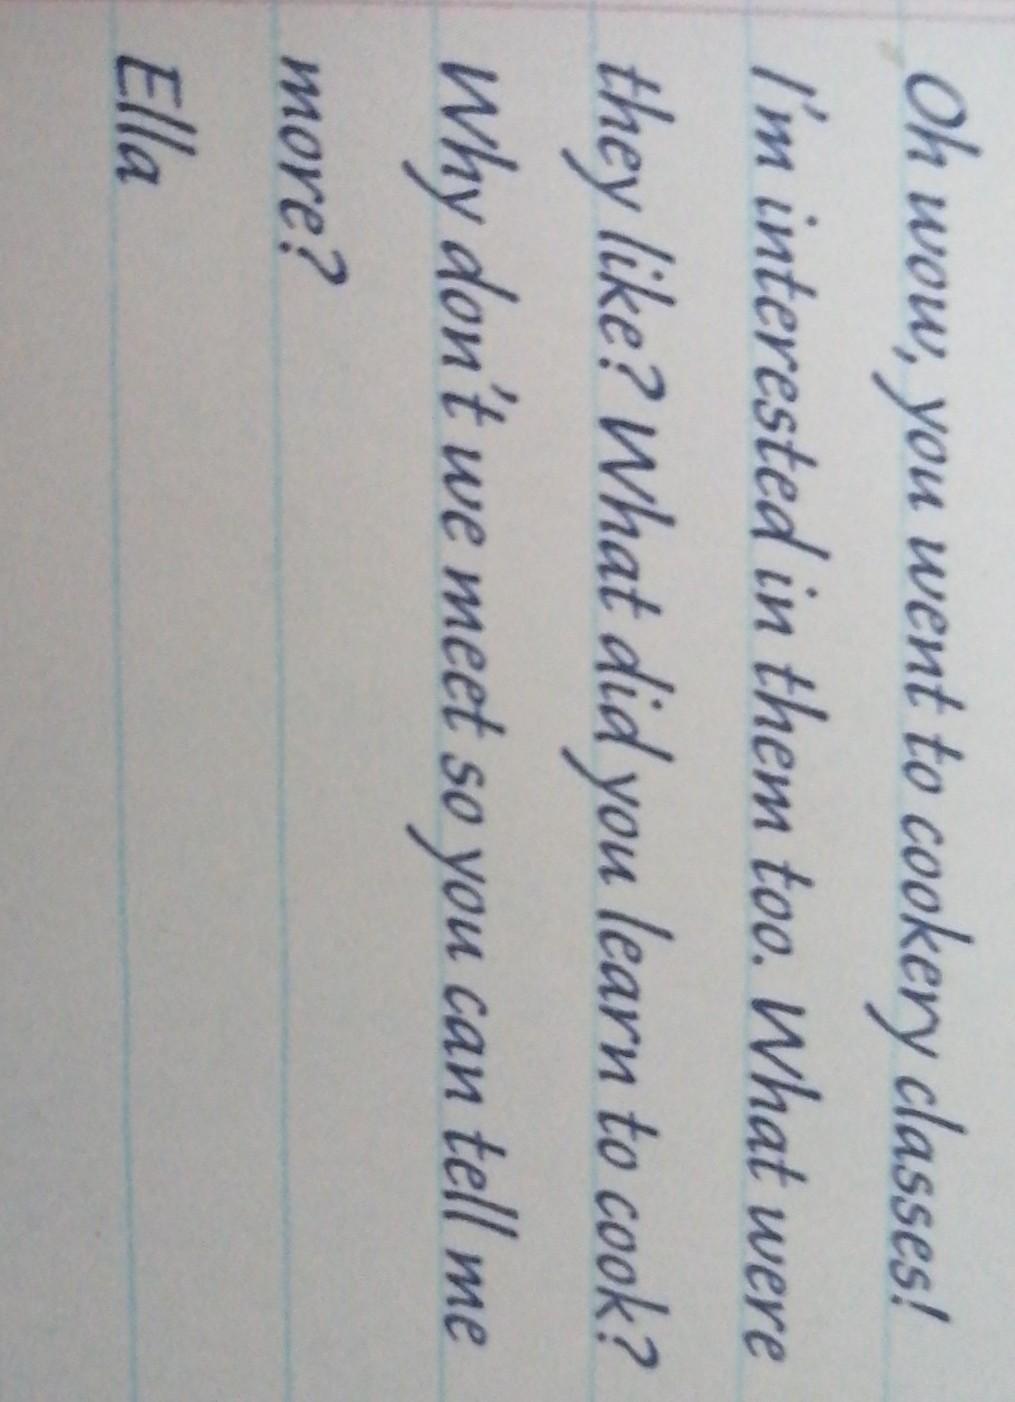 Oh wow, you went to cookery classes!
I'm interested in them too. What were
they like? What did you learn to cook?
Why don't we meet so you can tell me
more?
Ella